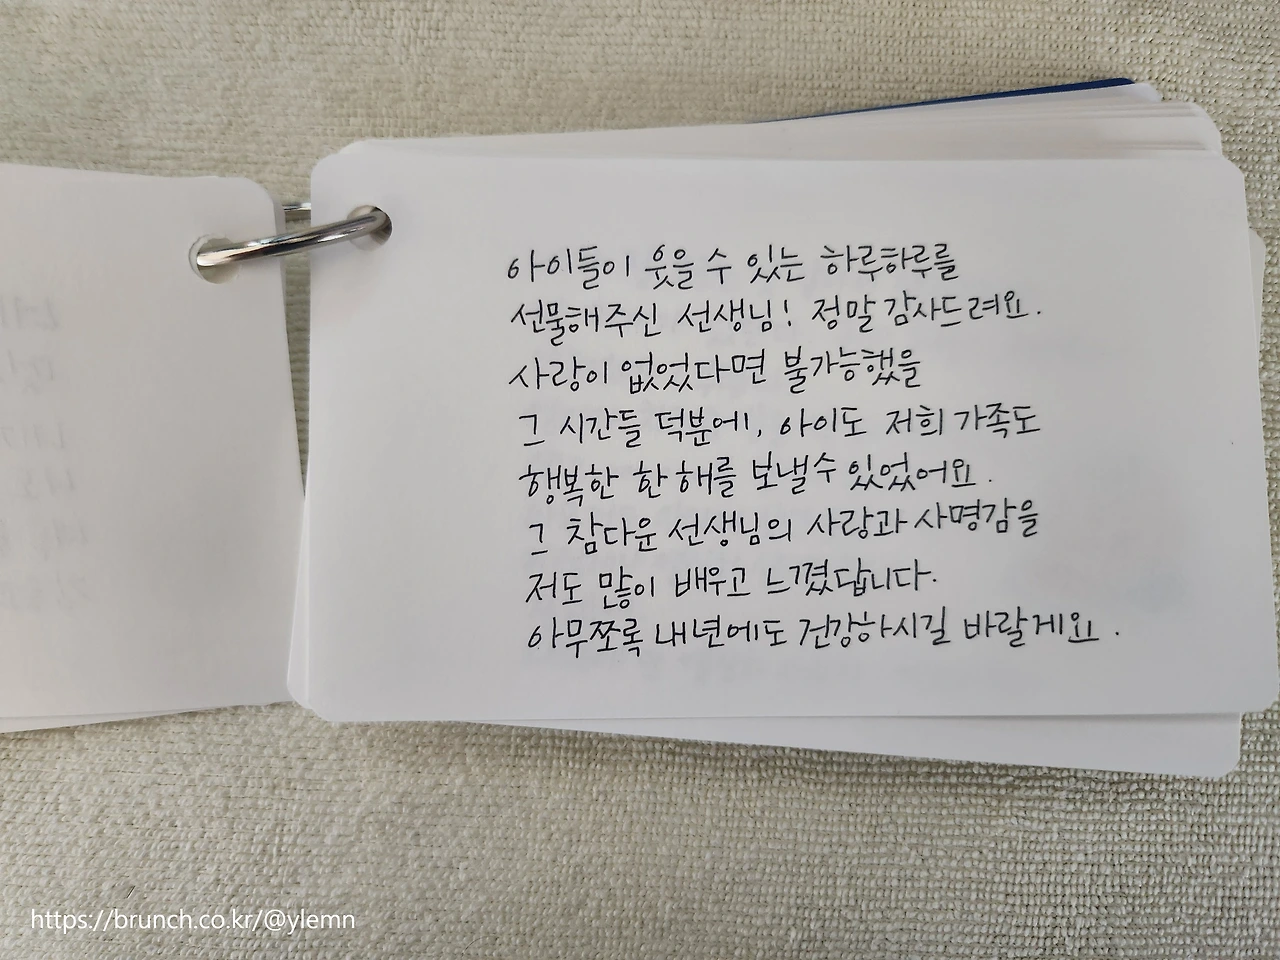 아이들이 웃을 수 있는 하루하루를
선물해주신 선생님! 정말 감사드려요.
사랑이 없었다면 불가능했을
그 시간들 덕분에, 아이도 저희 가족도
행복한 한 해를 보낼 수 있었어요.
그 참다운 선생님의 사랑과 사명감을
저도 많이 배우고 느꼈답니다.
아무쪼록 내년에도 건강하시길 바랄게요.
https://brunch.co.kr/@ylemn